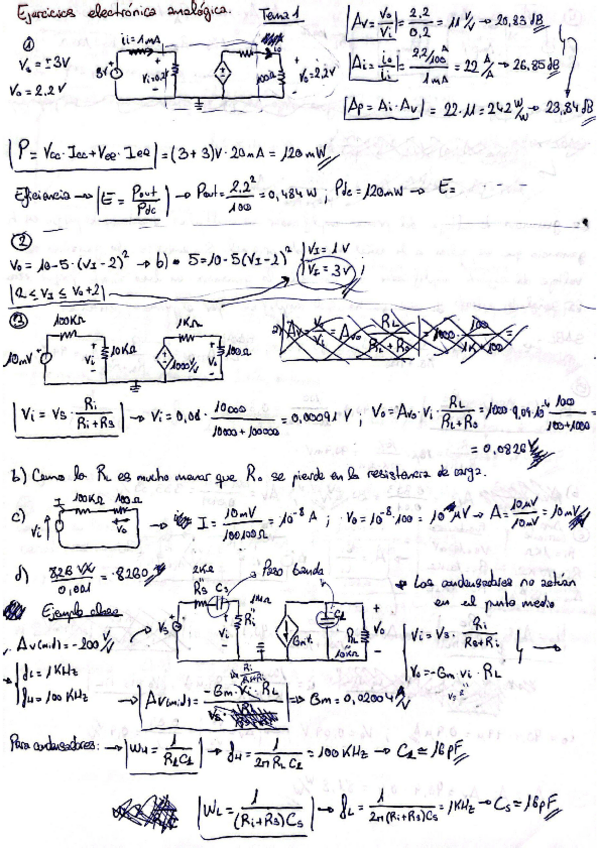 Ejercicios electrónica analógica. Tema 1
① ii = 1mA
Vs = ±3V
Vo = 2,2V
Vi = 0,2V
100Ω
Vo = 2,2V
|Av = Vo/Vi| = 2,2/0,2 = 11 V/V → 20,83 dB
|Ai = io/ii| = (2,2/100)/1mA = 22 A/A → 26,85 dB
|Ap = Ai · Av| = 22 · 11 = 242 W/W → 23,84 dB
|P = Vcc · Icc + Vee · Iee| = (3+3)V · 20mA = 120mW
Eficiencia → |E = Pout/Pdc| → Pout = 2,2²/100 = 0,484 W ; Pdc = 120mW → E =
②
Vo = 10 - 5 · (VI - 2)² → b) 5 = 10 - 5(VI - 2)² VI = 1V
VI = 3V
|2 ≤ VI ≤ Vo + 2|
③ 100KΩ 1KΩ
10mV Vi 10KΩ 1000Vi Vo 100Ω
|Vi = Vs · Ri/(Ri+Rs)| → Vi = 0,01 · 10000/(10000+100000) = 0,00091 V ; Vo = Avo · Vi · RL/(RL+Ro)
= 0,0826V
b) Como la RL es mucho menor que Ro se pierde en la resistencia de carga.
c) I 100KΩ 100Ω
Vi Vo → I = 10mV/100100Ω = 10⁻⁸ A ; Vo = 10⁻⁸ · 100 = 10 μV → A = 10μV/10mV
d) = 8260
Ejemplo clase
2KΩ Rs Cs Paso banda
1MΩ Ri
10KΩ RL
→ Los condensadores no están
en el punto medio
Av(mid) = -200 V/V
fL = 1KHz
fH = 100KHz
Vi = Vs · Ri/(Rs+Ri)
Vo = -Gm · Vi · RL
→ Gm = 0,02004 A/V
Para condensadores: → |WH = 1/(RL CL)| → fH = 1/(2π RL CL) = 100 KHz → CL ≃ 16pF
|WL = 1/((Ri+Rs)Cs)| → fL = 1/(2π(Ri+Rs)Cs) = 1KHz → Cs ≃ 16pF